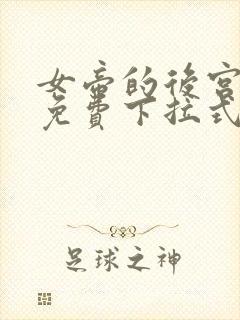 女帝的後宮
免費下拉式
足球之神